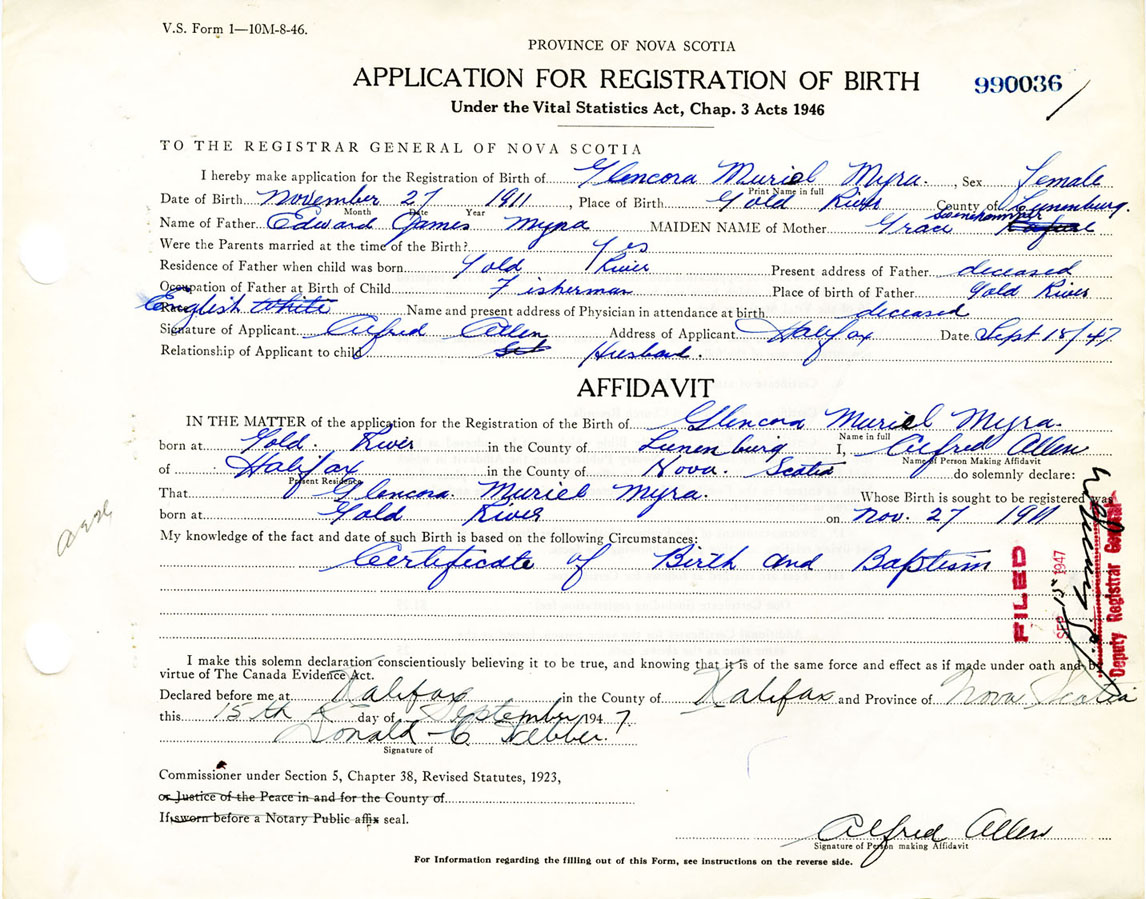 V.S. Form 1—10M-8-46.
PROVINCE OF NOVA SCOTIA
APPLICATION FOR REGISTRATION OF BIRTH
990036
Under the Vital Statistics Act, Chap. 3 Acts 1946
TO THE REGISTRAR GENERAL OF NOVA SCOTIA
I hereby make application for the Registration of Birth of Glencora Muriel Myra. , Sex Female
Print Name in full
Date of Birth November 27 1911 , Place of Birth Gold River County of Lunenburg.
Month Date Year
Name of Father Edward James Myra MAIDEN NAME of Mother Grace
Were the Parents married at the time of the Birth? Yes
Residence of Father when child was born Gold River Present address of Father deceased
Occupation of Father at Birth of Child Fisherman Place of birth of Father Gold River
English White Name and present address of Physician in attendance at birth deceased
Signature of Applicant Alfred Allen Address of Applicant Halifax Date Sept 15/47
Relationship of Applicant to child Husband.
AFFIDAVIT
IN THE MATTER of the application for the Registration of the Birth of Glencora Muriel Myra.
Name in full
born at Gold River in the County of Lunenburg I, Alfred Allen
Name of Person Making Affidavit
of Halifax in the County of Nova Scotia do solemnly declare:
Present Residence
That Glencora Muriel Myra. Whose Birth is sought to be registered was
born at Gold River on Nov. 27 1911
My knowledge of the fact and date of such Birth is based on the following Circumstances:
Certificate of Birth and Baptism
FILED
SEP 15 1947
Deputy Registrar General
I make this solemn declaration conscientiously believing it to be true, and knowing that it is of the same force and effect as if made under oath and by
virtue of The Canada Evidence Act.
Declared before me at Halifax in the County of Halifax and Province of Nova Scotia
this 15th day of September 1947
Donald C Webber.
Signature of
Commissioner under Section 5, Chapter 38, Revised Statutes, 1923,
or Justice of the Peace in and for the County of
If sworn before a Notary Public affix seal.
Alfred Allen
Signature of Person making Affidavit
For Information regarding the filling out of this Form, see instructions on the reverse side.